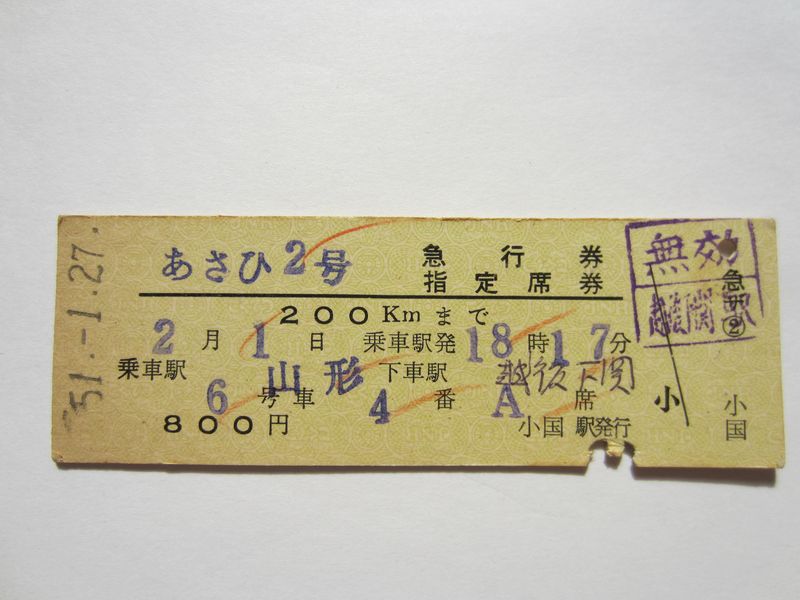 51.-1.27.
あさひ2号
急行券
指定席券
200Kmまで
2月1日 乗車駅発18時17分
乗車駅 山形 下車駅 越後下関
6号車 4番 A席
800円
小国駅発行
無効
小
小国